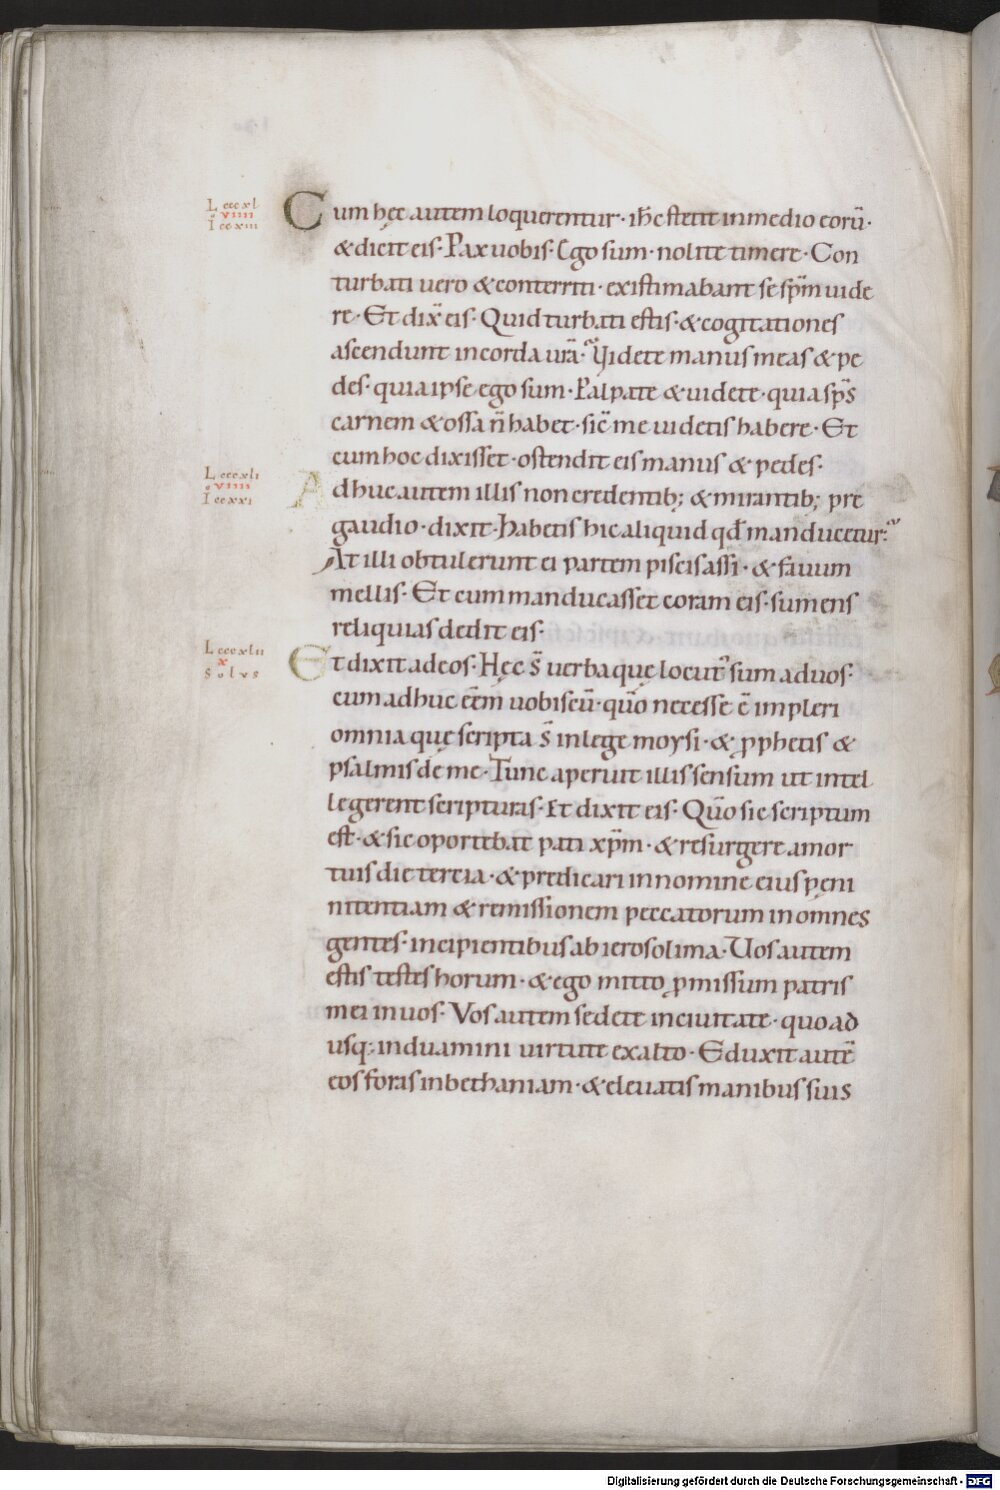 L cccxl
viiii
I ccxiii
Cum hęc autem loquerentur · ih̅c stetit in medio eorū ·
& dicit eis · Pax uobis · Ego sum · nolite timere · Con
turbati uero & conterriti · existimabant se sp̅m uide
re · Et dix̅ eis · Quid turbati estis · & cogitationes
ascendunt in corda ur̅a · Videte manus meas & pe
des · quia ipse ego sum · Palpate & uidete · quia sp̅s
carnem & ossa n̅ habet · sic̅ me uidetis habere · Et
cum hoc dixisset · ostendit eis manus & pedes ·
L cccxli
viiii
I ccxxi
Adhuc autem illis non credentib; & mirantib; pre
gaudio · dixit · Habetis hic aliquid qđ manducetur ·
At illi obtulerunt ei partem piscis assi · & fauum
mellis · Et cum manducasset coram eis · sumens
reliquias dedit eis ·
L cccxlii
x
Solvs
Et dixit ad eos · Hęc s̅ uerba quę locut᾽ sum ad uos ·
cum adhuc ee̅m uobiscū · quo̅ necesse e̅ impleri
omnia quę scripta s̅ in lege moysi · & ꝓphetis &
psalmis de me · Tunc aperuit illis sensum ut intel
legerent scripturas · Et dixit eis · Quo̅ sic scriptum
est · & sic oportebat pati xp̅m · & resurgere a mor
tuis die tercia · & predicari in nomine eius pęni
nitentiam & remissionem peccatorum in omnes
gentes · incipientibus ab ierosolima · Uos autem
estis testes horum · & ego mitto ꝓmissum patris
mei in uos · Vos autem sedete in ciuitate · quo ad
usq; induamini uirtute ex alto · Eduxit autē
eos foras in bethaniam · & eleuatis manibus suis
Digitalisierung gefördert durch die Deutsche Forschungsgemeinschaft - DFG